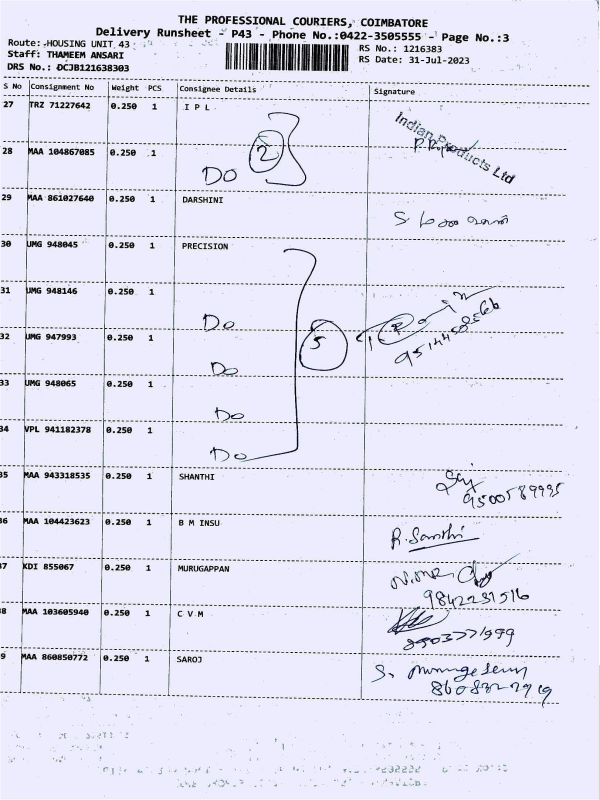 THE PROFESSIONAL COURIERS, COIMBATORE
Delivery Runsheet - P43 - Phone No.:0422-3505555 - Page No.:3
Route: HOUSING UNIT 43
RS No.: 1216383
Staff: THAMEEM ANSARI
RS Date: 31-Jul-2023
DRS No.: DCJB121638303
S No Consignment No Weight PCS Consignee Details Signature
27 TRZ 71227642 0.250 1 I P L
Indian Products Ltd
28 MAA 104867085 0.250 1
2
Do
29 MAA 861027640 0.250 1 DARSHINI
30 UMG 948045 0.250 1 PRECISION
31 UMG 948146 0.250 1
Do
32 UMG 947993 0.250 1
5
Do
33 UMG 948065 0.250 1
Do
34 VPL 941182378 0.250 1
Do
35 MAA 943318535 0.250 1 SHANTHI
9500589995
36 MAA 104423623 0.250 1 B M INSU
R. Santhi
37 KDI 855067 0.250 1 MURUGAPPAN
9842231516
38 MAA 103605940 0.250 1 C V M
39 MAA 860850772 0.250 1 SAROJ